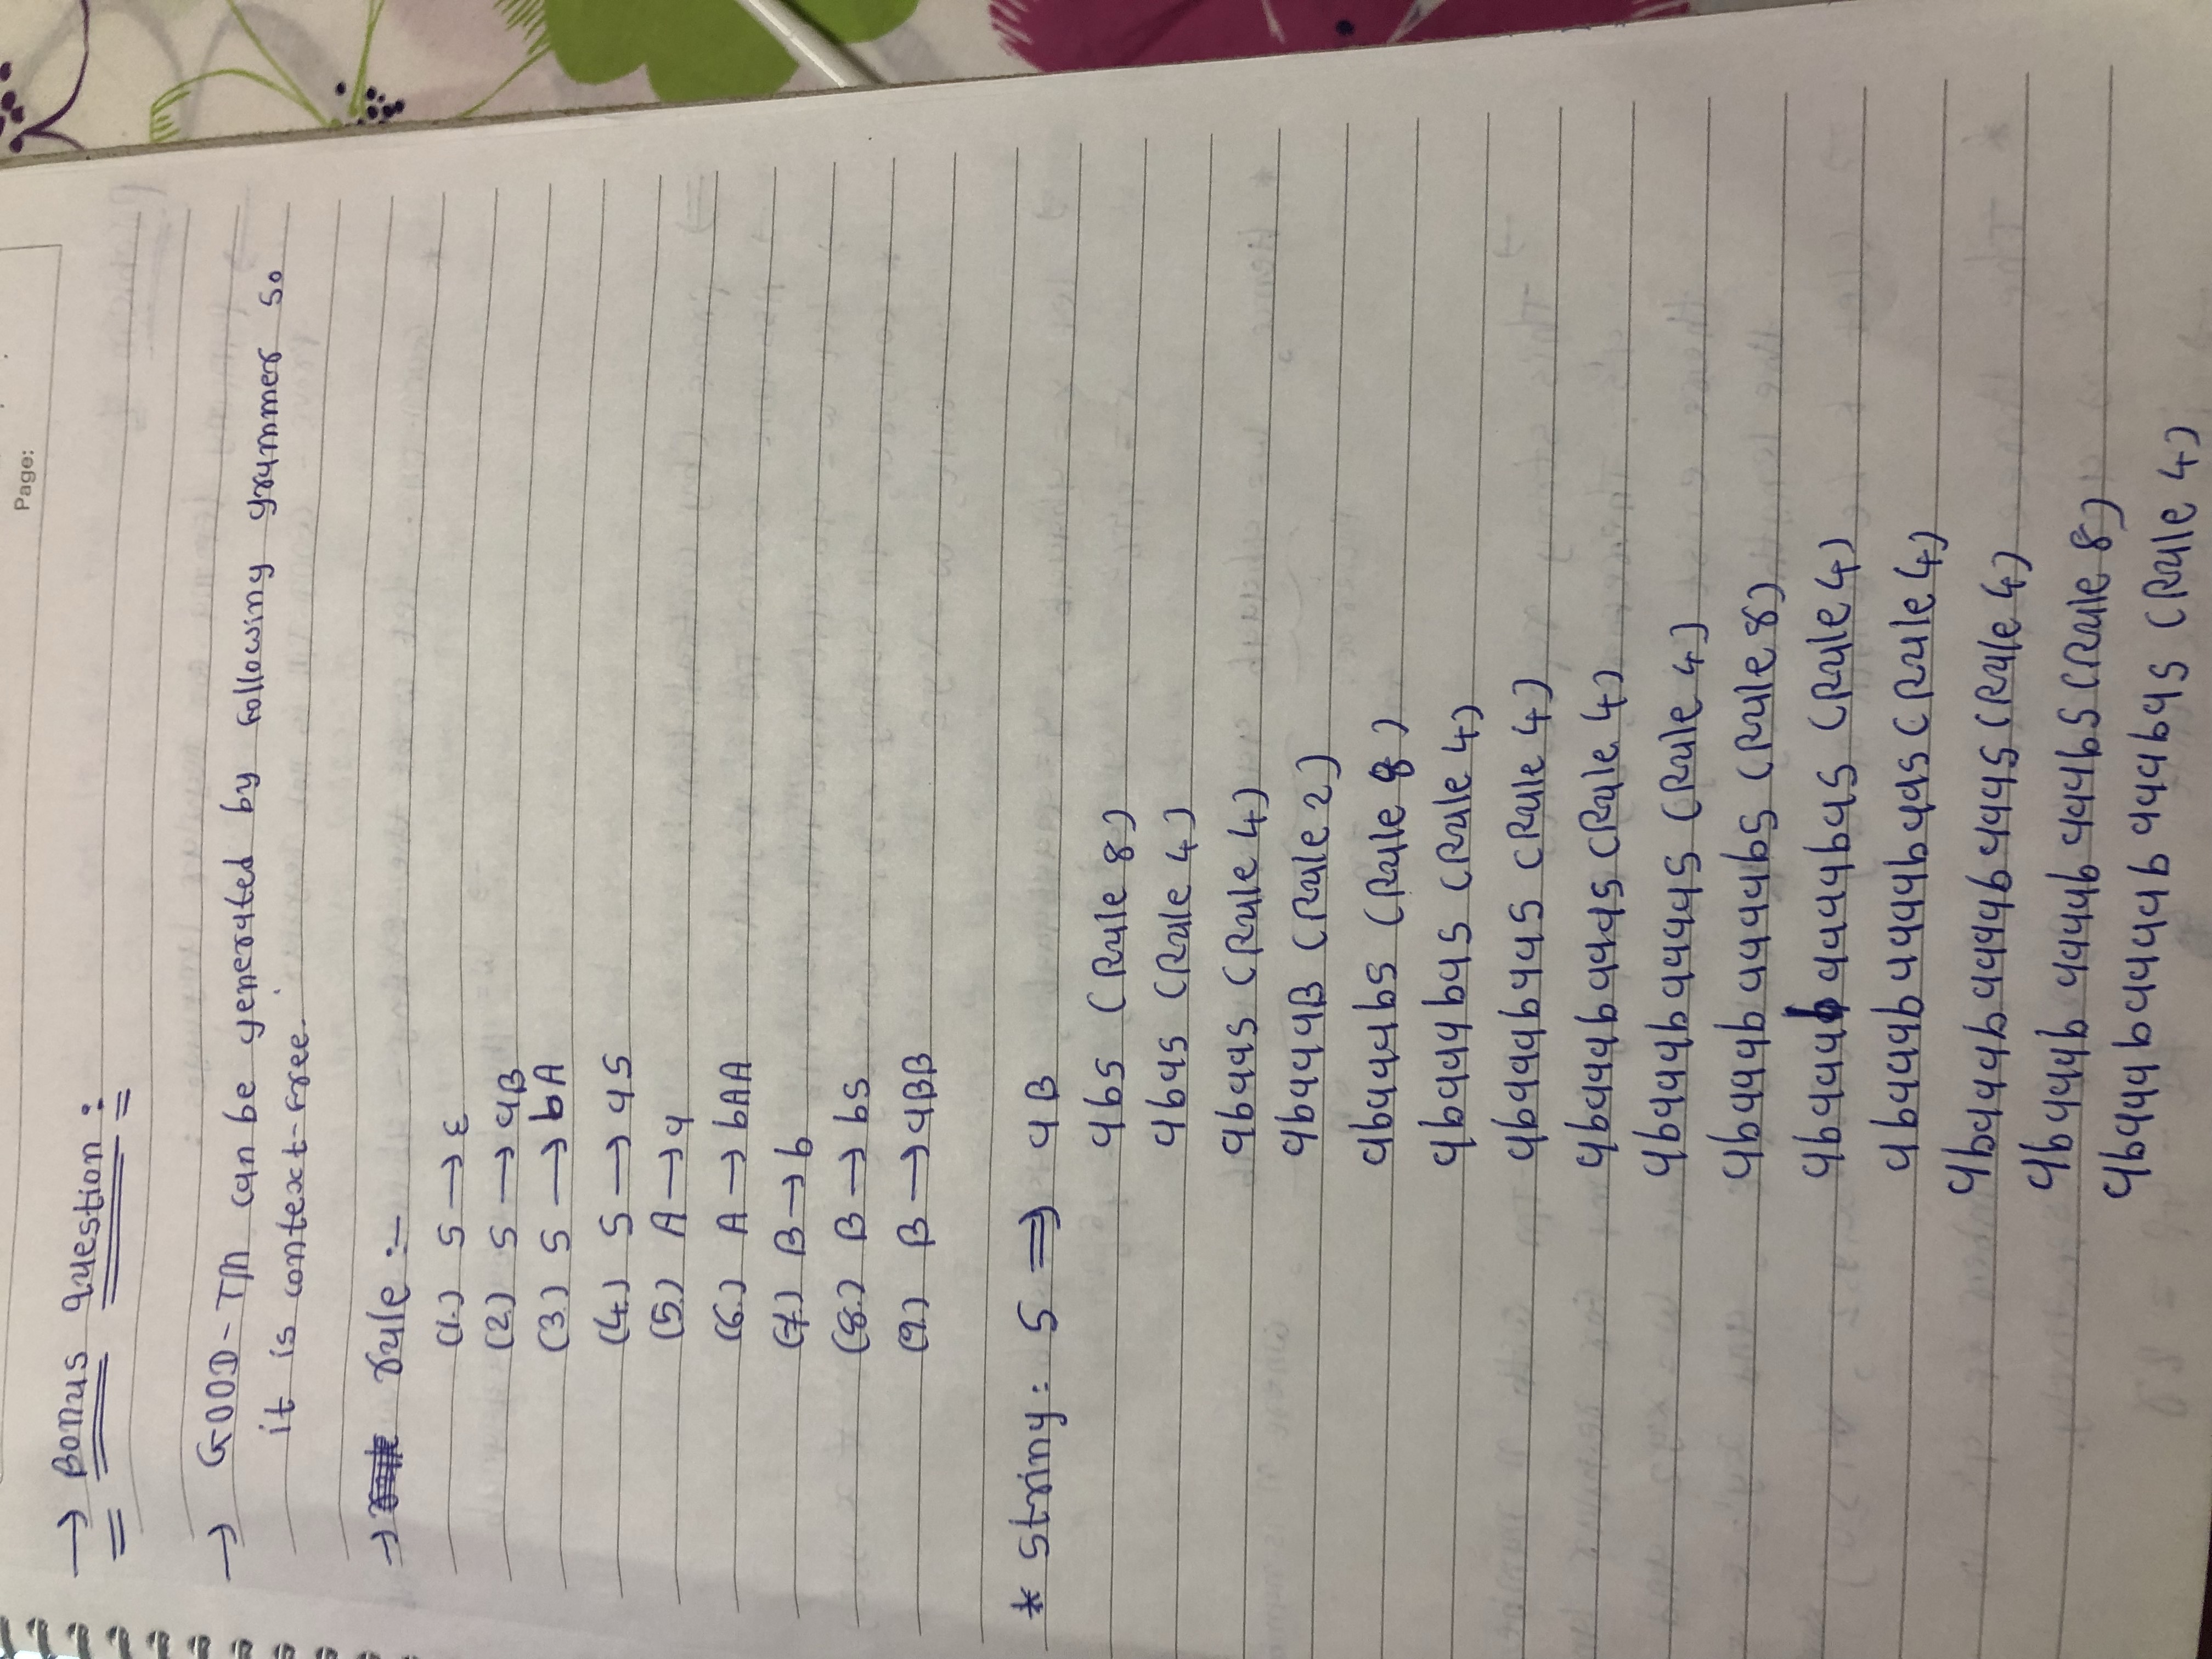 Page:
→ Bonus question :
→ GOOD-TM can be generated by following grammer so
it is context-free.
→ rule :-
(1.) S → ε
(2.) S → aB
(3.) S → bA
(4.) S → aS
(5.) A → a
(6.) A → bAA
(7.) B → b
(8.) B → bS
(9.) B → aBB
* string : S ⇒ aB
abS (Rule 8)
abaS (Rule 4)
abaaS (Rule 4)
abaaaB (Rule 2)
abaaabS (Rule 8)
abaaabaS (Rule 4)
abaaabaaS (Rule 4)
abaaab aaaS (Rule 4)
abaaab aaaaS (Rule 4)
abaaab aaaabS (Rule 8)
abaaab aaaabaS (Rule 4)
abaaab aaaabaaS (Rule 4)
abaaab aaaab aaaS (Rule 4)
abaaab aaaab aaabS (Rule 8)
abaaab aaaab aaabaS (Rule 4)